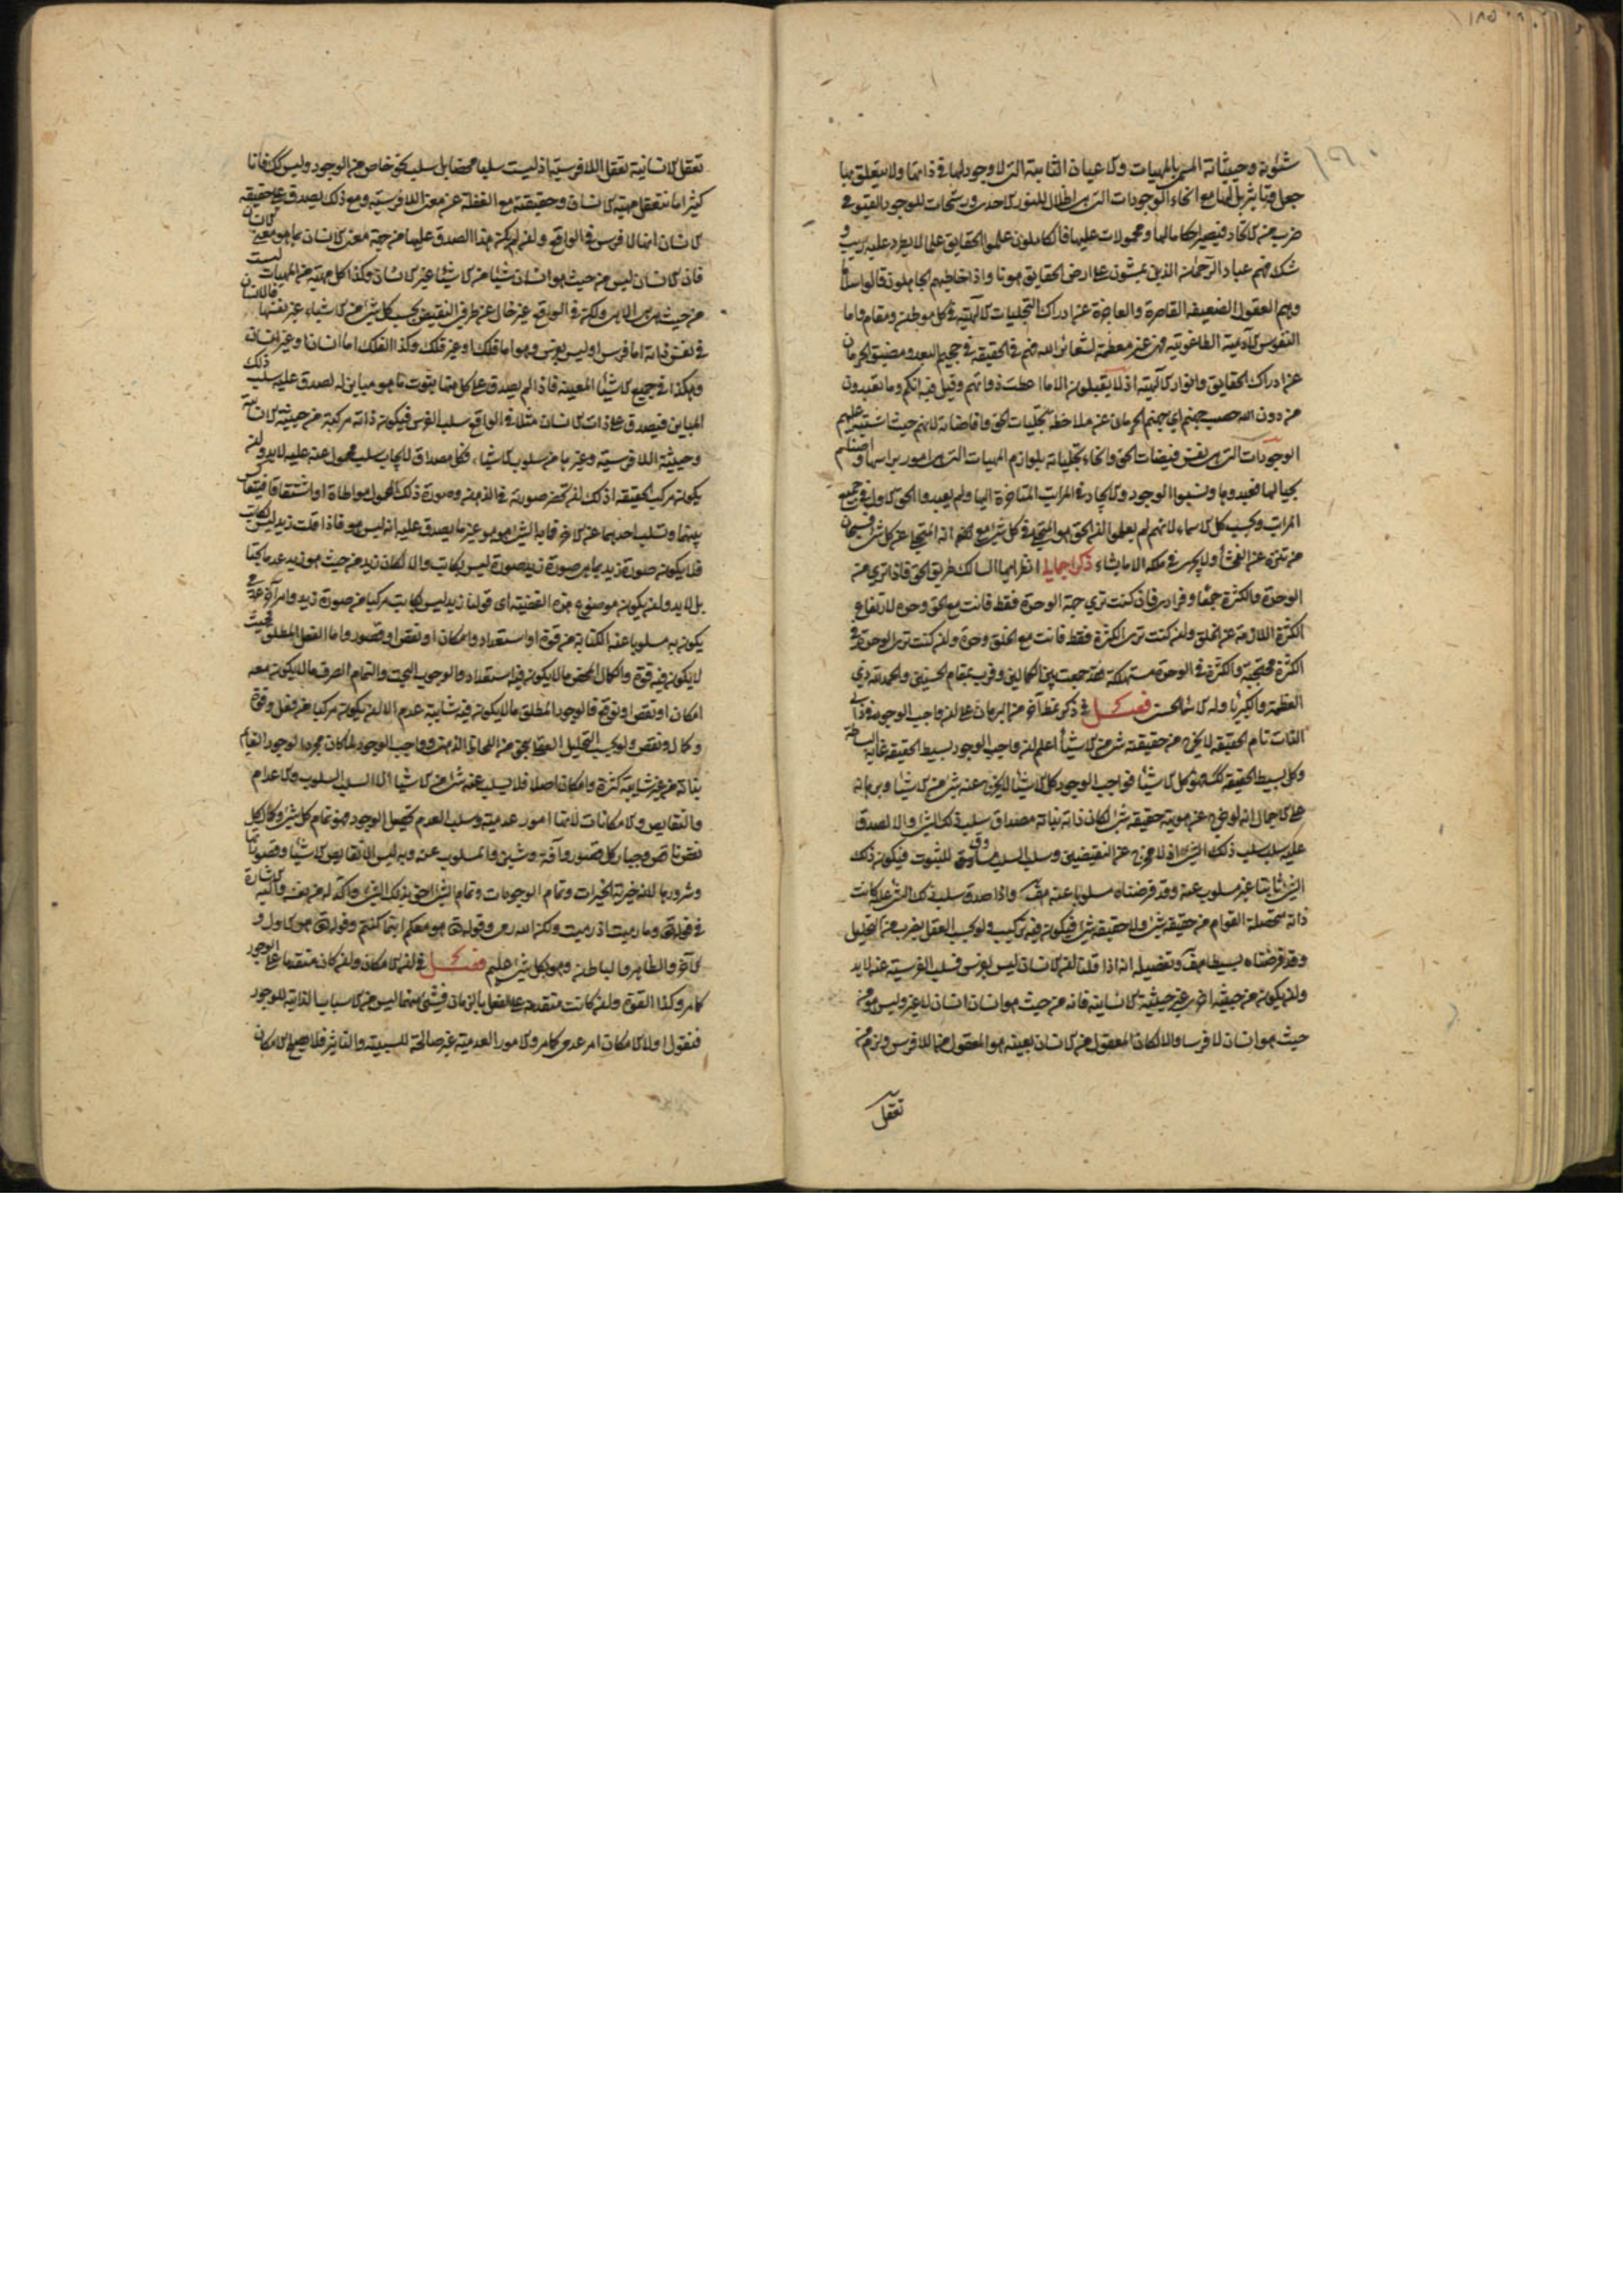 شئونه وحيثياته المسمى بالمهيات والاعيان الثابتة التى لا وجود لها فى ذاتها ولا يتعلق بها
جعل وتاثير بل انها مع انحاء الوجودات التى هى اظلال للنور الاحدى ورشحات للوجود القيومى
ضرب من الاتحاد فيصير احكاما لها ومحمولات عليها فالكاملون علموا الحقايق علما لا يطرد عليه ريب و
شك فهم عباد الرحمان الذين يمشون على ارض الحقايق هونا واذا خاطبهم الجاهلون قالوا سلاما
وهم العقول الضعيفة القاصرة والعاجزة عن ادراك التجليات الالهية فى كل موطن ومقام واما
النفوس الابية الطاغوتية فهى غير معظمة لشعائر الله فهم فى الحقيقة فى جحيم البعد ومضيق الحرمان
عن ادراك الحقايق وانوار الالهية اذ لا يقبلون الا ما اعطت ذواتهم وقيل فيه انكم وما تعبدون
من دون الله حصب جهنم اى جهنم الحرمان عن ملاحظة تجليات الحق وافاضاته لانهم حيث اشتبه عليهم
الوجودات التى هى نفس فيضات الحق وانحاء تجلياته بلوازم المهيات التى هى امور برأسها واصنام
بحيالها فعبدوها ونسبوا الوجود والايجاد فى المراتب المتاخرة اليها ولم يعبدوا الحق الاول فى جميع
المراتب وبحسب كل الاسماء لانهم لم يعلموا ان الحق هو المتجلى فى كل شئ مع انه المتخلى عن كل شئ فسبحان
من تنزه عن الفحشاء ولا يجرى فى ملكه الا ما يشاء ذكر اجمالى انظر ايها السالك طريق الحق ماذا ترى من
الوحدة والكثرة جمعا وفرادى فان كنت ترى جهة الوحدة فقط فانت مع الحق وحده لارتفاع
الكثرة اللازمة عن الخلق وان كنت ترى الكثرة فقط فانت مع الخلق وحده وان كنت ترى الوحدة فى
الكثرة محتجبة والكثرة فى الوحدة مستهلكة فقد جمعت بين الكمالين وفزت بمقام الحسنيين والحمد لله ذى
العظمة والكبرياء وله الاسماء الحسنى فصل فى ذكر نمط آخر من البرهان على ان واجب الوجود فردانى
الذات تام الحقيقة لا يخرج من حقيقته شئ من الاشياء اعلم ان واجب الوجود بسيط الحقيقة غاية البساطة
وكل بسيط الحقيقة كذلك فهو كل الاشياء فواجب الوجود كل الاشياء لا يخرج عنه شئ من الاشياء وبرهانه
على الاجمال انه لو خرج عن هوية حقيقته شئ لكان ذاته بذاته مصداق سلب ذلك الشئ والا لصدق
عليه سلب سلب ذلك الشئ اذ لا مخرج عن النقيضين وسلب السلب مساوق للثبوت فيكون ذلك
الشئ ثابتا غير مسلوب عنه وقد فرضناه مسلوبا عنه هف واذا صدق سلب ذلك الشئ عليه كانت
ذاته متحصلة القوام من حقيقة شئ ولا حقيقة شئ فيكون فيه تركيب ولو بحسب العقل بضرب من التحليل
وقد فرضناه بسيطا هف وتفصيله انه اذا قلنا ان الانسان ليس بفرس فسلب الفرسية عنه لا بد
وان يكون من حيثية اخرى غير حيثية الانسانية فانه من حيث هو انسان انسان لا غير وليس هو من
حيث هو انسان لا فرسا والا لكان المعقول من الانسان بعينه هو المعقول من اللافرس ولزم من
تعقل
تعقل الانسانية تعقل اللافرسية اذ ليست سلبا محضا بل سلب نحو خاص من الوجود وليس كذلك فانا
كثيرا ما نتعقل مهية الانسان وحقيقته مع الغفلة عن معنى اللافرسية ومع ذلك يصدق على حقيقة
الانسان انها لا فرس فى الواقع وان لم يكن هذا الصدق عليها من جهة معنى الانسان بما هو معنى الانسان
فان الانسان ليس من حيث هو انسان شيئا من الاشياء غير الانسان وكذا كل مهية من المهيات ليست
من حيث هى هى الا هى ولكن فى الواقع غير خال عن طرفى النقيض بحسب كل شئ من الاشياء غير نفسها فالانسان
فى نفس ذاته اما فرس او ليس بفرس وهو اما فلك او غير فلك وكذا الفلك اما انسان او غير انسان
وهكذا فى جميع الاشياء المعينة فاذا لم يصدق على كل منها ثبوت ما هو مباين له لصدق عليه سلب ذلك
المباين فيصدق على ذات الانسان مثلا فى الواقع سلب الفرس فيكون ذاته مركبة من حيثية الانسانية
وحيثية اللافرسية وغيرها من سلوب الاشياء فكل مصداق لايجاب سلب محمول عنه عليه لا بد وان
يكون مركب الحقيقة اذ لك ان تحضر صورته فى الذهن وصورة ذلك المحمول مواطاة او اشتقاقا فتقايس
بينهما وتسلب احدهما عن الاخر فما به الشئ هو هو غير ما يصدق عليه انه ليس هو فاذا قلت زيد ليس بكاتب
فلا يكون صورة زيد بما هى صورة زيد صورة ليس بكاتب والا لكان زيد من حيث هو زيد عدما بحتا
بل لا بد وان يكون موضوع هذه القضية اى قولنا زيد ليس بكاتب مركبا من صورة زيد وامر آخر عدمى
يكون به مسلوبا عنه الكتابة من قوة او استعداد او امكان او نقص او قصور واما الفعل المطلق فحيث
لا يكون فيه قوة والكمال المحض ما لا يكون فيه استعداد والوجوب البحت والتمام الصرف ما لا يكون معه
امكان او نقص او توقع فالوجود المطلق ما لا يكون فيه شائبة عدم الا ان يكون مركبا من فعل وقوة
وكمال ونقص ولو بحسب التحليل العقلى بنحو من اللحاظ الذهنى وواجب الوجود لما كان مجرد الوجود القائم
بذاته من غير شائبة كثرة وامكان اصلا فلا يسلب عنه شئ من الاشياء الا سلب السلوب والاعدام
والنقايص والامكانات لانها امور عدمية وسلب العدم تحصيل الوجود فهو تمام كل شئ وكمال كل
نقص ناقص وجبار كل قصور وآفة وشين والمسلوب عنه وبه ليس الا نقايص الاشياء وقصوراتها
وشرورها لانه خيرية الخيرات وتمام الوجودات وتمام الشئ احق بذلك الشئ وآكد له من نفسه واليه الاشارة
فى قوله تعالى وما رميت اذ رميت ولكن الله رمى وقوله تعالى وهو معكم اينما كنتم وقوله تعالى هو الاول و
الآخر والظاهر والباطن وهو بكل شئ عليم فصل فى ان الامكان وان كان متقدما على الوجود
كما مر وكذا القوة وان كانت متقدمة على الفعل بالزمان فشئ منهما ليس من الاسباب الذاتية للوجود
فنقول اولا الامكان امر عدمى كما مر والامور العدمية غير صالحة للسببية والتاثير فلا يصلح الامكان